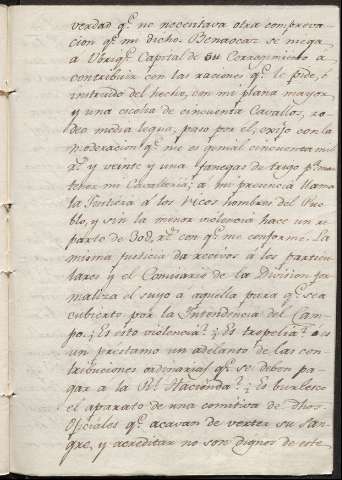 verdad q.e no necesitava otra comprova-
cion q.e mi dicho. Benaocaz se niega
a Ubriq.e Capital de su Corregimiento a
contribuir con las raciones q.e le pide, é
instruido del hecho, con mi plana mayor
y una escolta de cincuenta Cavallos, ro-
deo media legua, paso por el, exijo con la
moderacion q.e me es genial cincuenta mil
r.s y veinte y una fanegas de trigo p.a man
tener mi Cavalleria; a mi presencia llama
la Justicia a los ricos hombres del Pue-
blo, y sin la menor violencia hace un re
parto de 30d. r.s con q.e me conformé. La
misma Justicia da recivos a los particu-
lares y el Comisario de la Division for
maliza el suyo a aquella para q.e sea
cubierto por la Intendencia del Cam-
po. ¿Es esto violencia? ¿Es tropelia? ó es
un préstamo un adelanto de las con-
tribuciones ordinarias q.e se deben pa-
gar a la R.l Hacienda? ¿Es burlesco
el aparato de una comitiva de dhos.
Oficiales q.e acavan de verter su San-
gre, y acreditar no son dignos de este